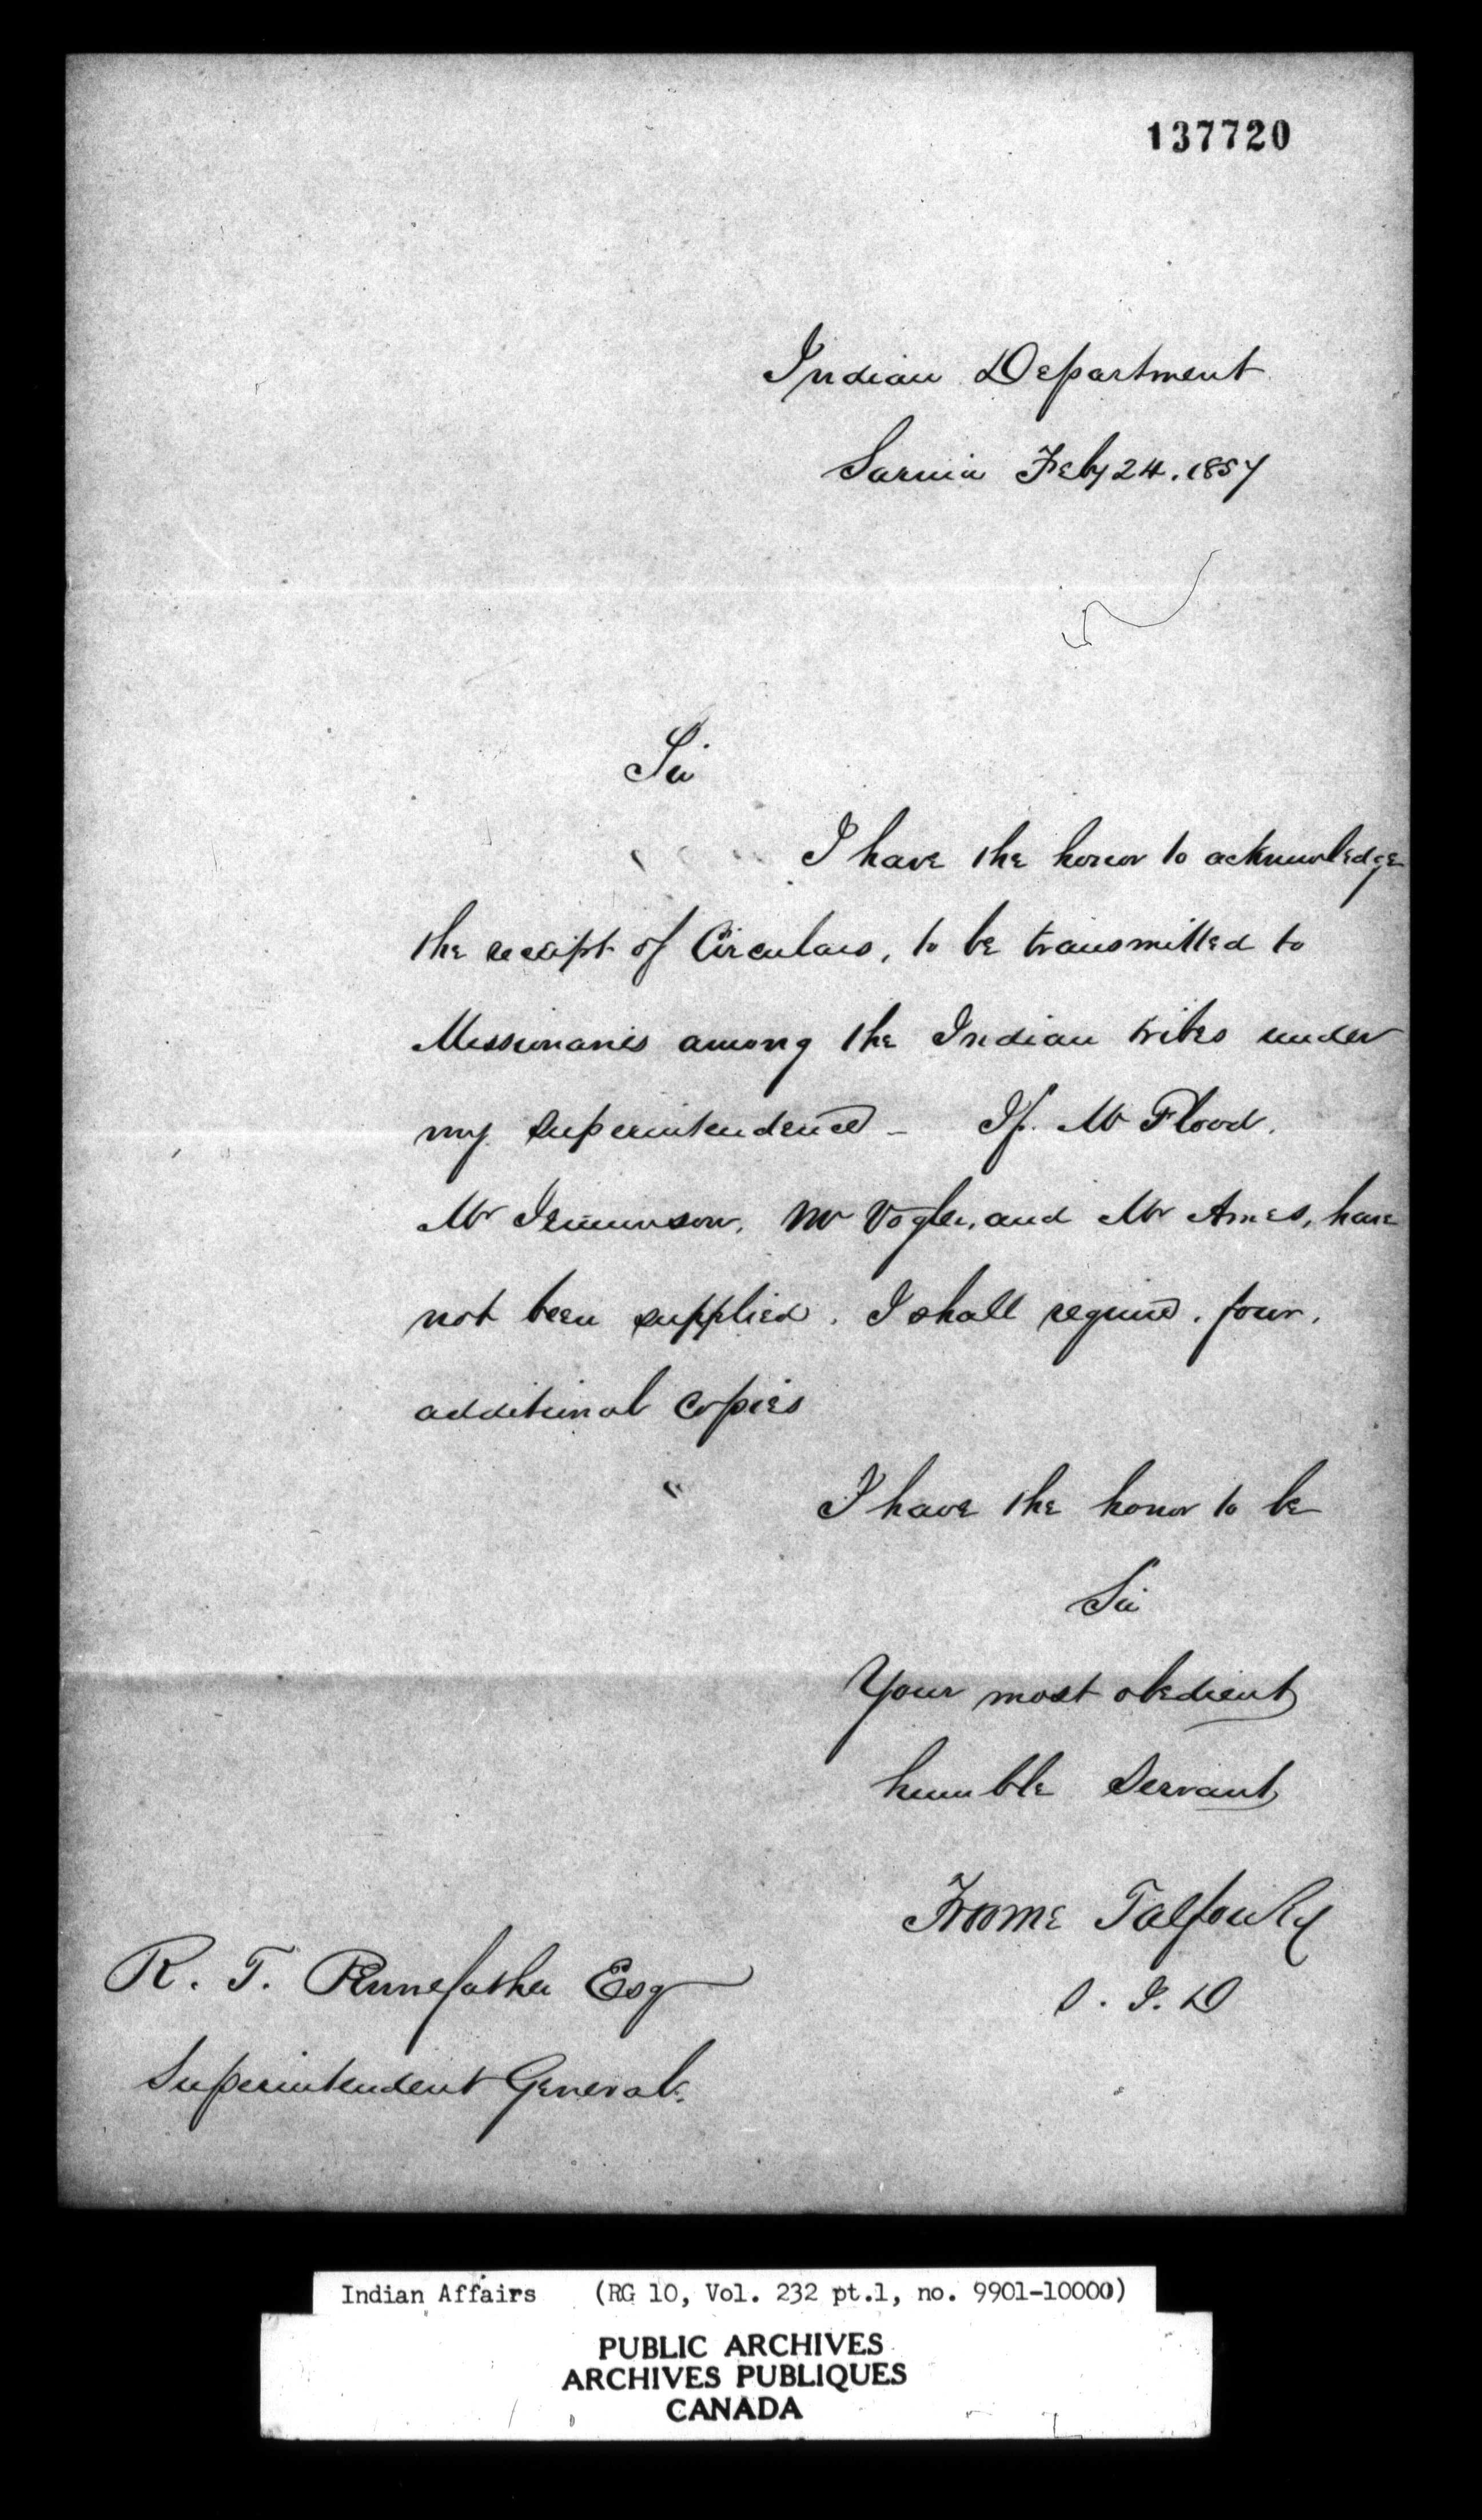 137720
Indian Department
Sarnia Feby 24. 1857
Sir
I have the honor to acknowledge
the receipt of Circulars, to be transmitted to
Missionaries among the Indian tribes under
my superintendence – If Mr Flood,
Mr Jemmerson, Mr Vogler, and Mr Ames, have
not been supplied. I shall require, four,
additional copies
I have the honor to be
Sir
Your most obedient
humble Servant
Froome Talfourd
S. I. D
R. T. Pennefather Esq
Superintendent General.
Indian Affairs (RG 10, Vol. 232 pt.1, no. 9901-10000)
PUBLIC ARCHIVES
ARCHIVES PUBLIQUES
CANADA